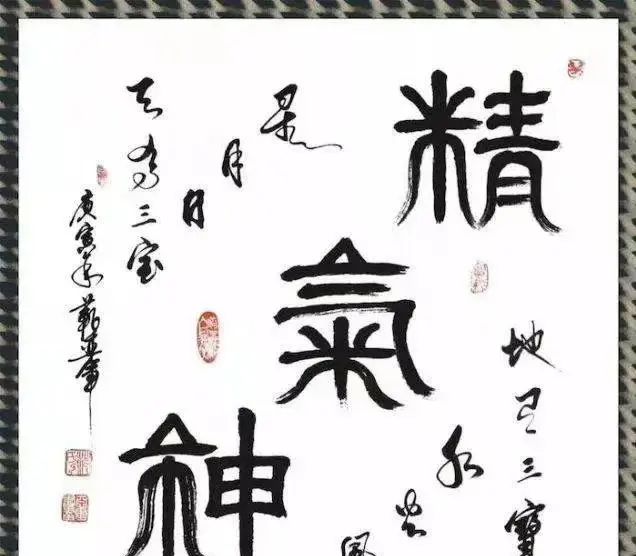 精氣神
天有三宝
日月星
地有三寶
水火風
庚寅年